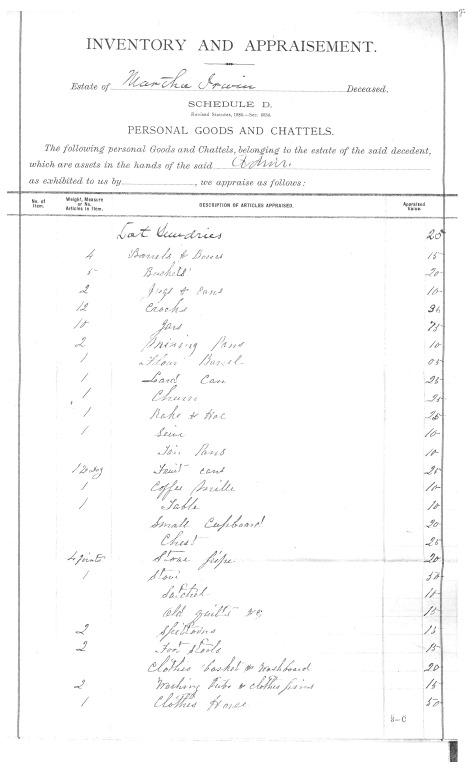 INVENTORY AND APPRAISEMENT.
Estate of Martha Irwin Deceased.
SCHEDULE D.
Revised Statutes, 1880.—Sec.
PERSONAL GOODS AND CHATTELS.
The following personal Goods and Chattels, belonging to the estate of the said decedent,
which are assets in the hands of the said Admr.
as exhibited to us by , we appraise as follows:
No. of Item. Weight, Measure or No. Articles in Item. DESCRIPTION OF ARTICLES APPRAISED. Appraised Value.
Lot Sundries 25
4 Barrels & Boxes 15
5 Buckets 20
2 Jugs & cans 10
12 Crocks 36
10 Jars 75
2 Pans 10
1 Flour Barrel 05
1 Lard Can 25
1 Churn 25
1 Rake & Hoe 25
1 10
Tin Pans 10
Fruit cans 25
1 Coffee Mill 10
1 Table 10
Small Cupboard 20
Chest 25
4 joints Stove pipe 20
1 Stove 50
Satchel 10
Old quilts &c 15
2 Spittoons 15
2 Foot Stools 15
Clothes basket & Washboard 20
2 Washing Tubs & clothes pins 15
1 Clothes Horse 50